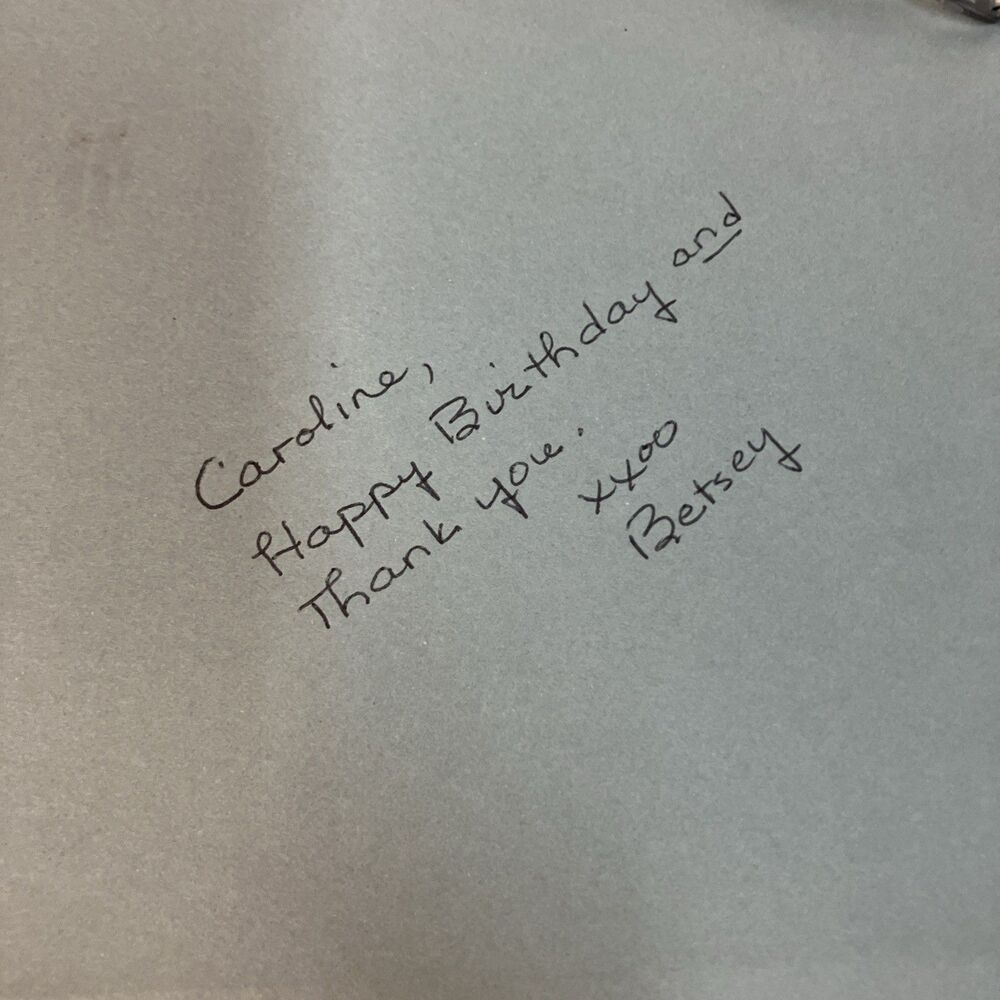 Caroline,
Happy Birthday and
Thank you.
xxoo
Betsey